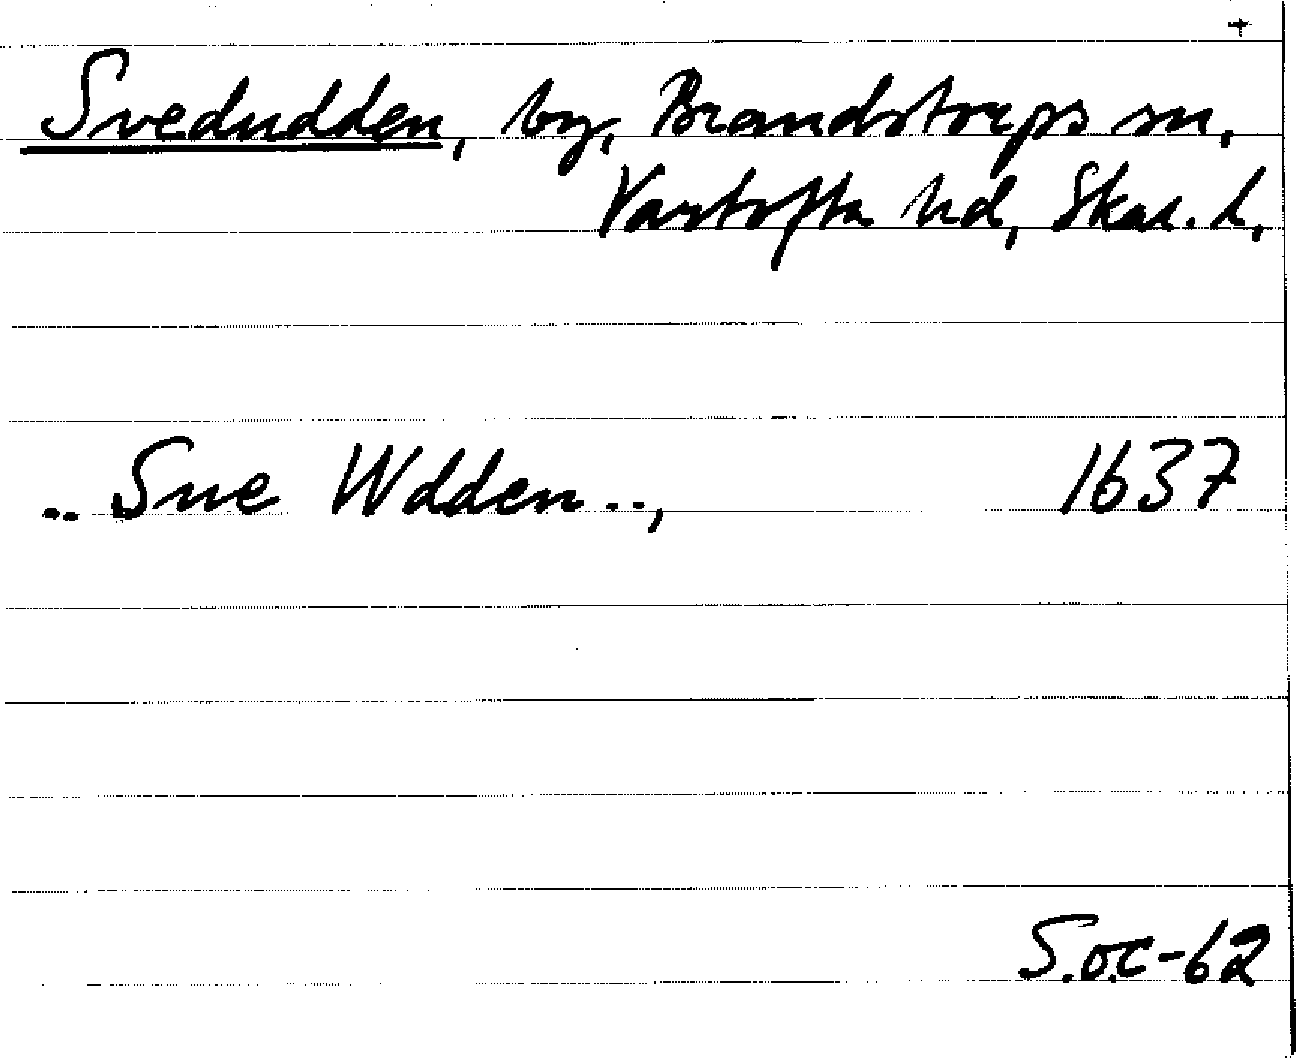 +
Svedudden, by, Brandstorps sn,
Vartofta hd, Skar. l.
.. Sue Wdden..,
1637
S.o.c-62